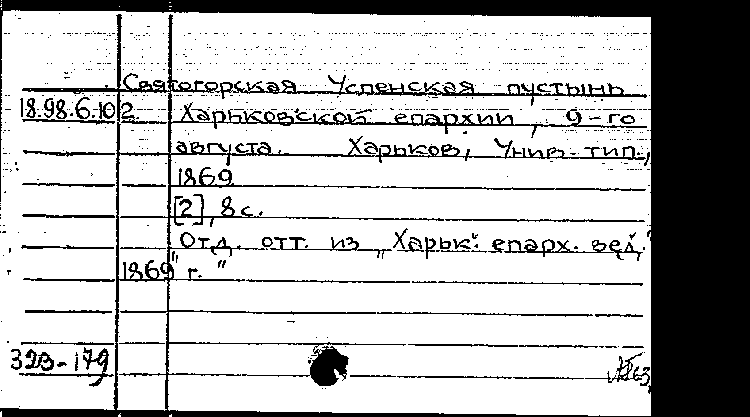 Святогорская Успенская пустынь
18.98.6.102 Харьковской епархии, 9-го
августа. Харьков, Унив. тип.,
1869.
[2], 8 с.
"Отд. отт. из „Харьк. епарх. вед."
1869 г."
323-179